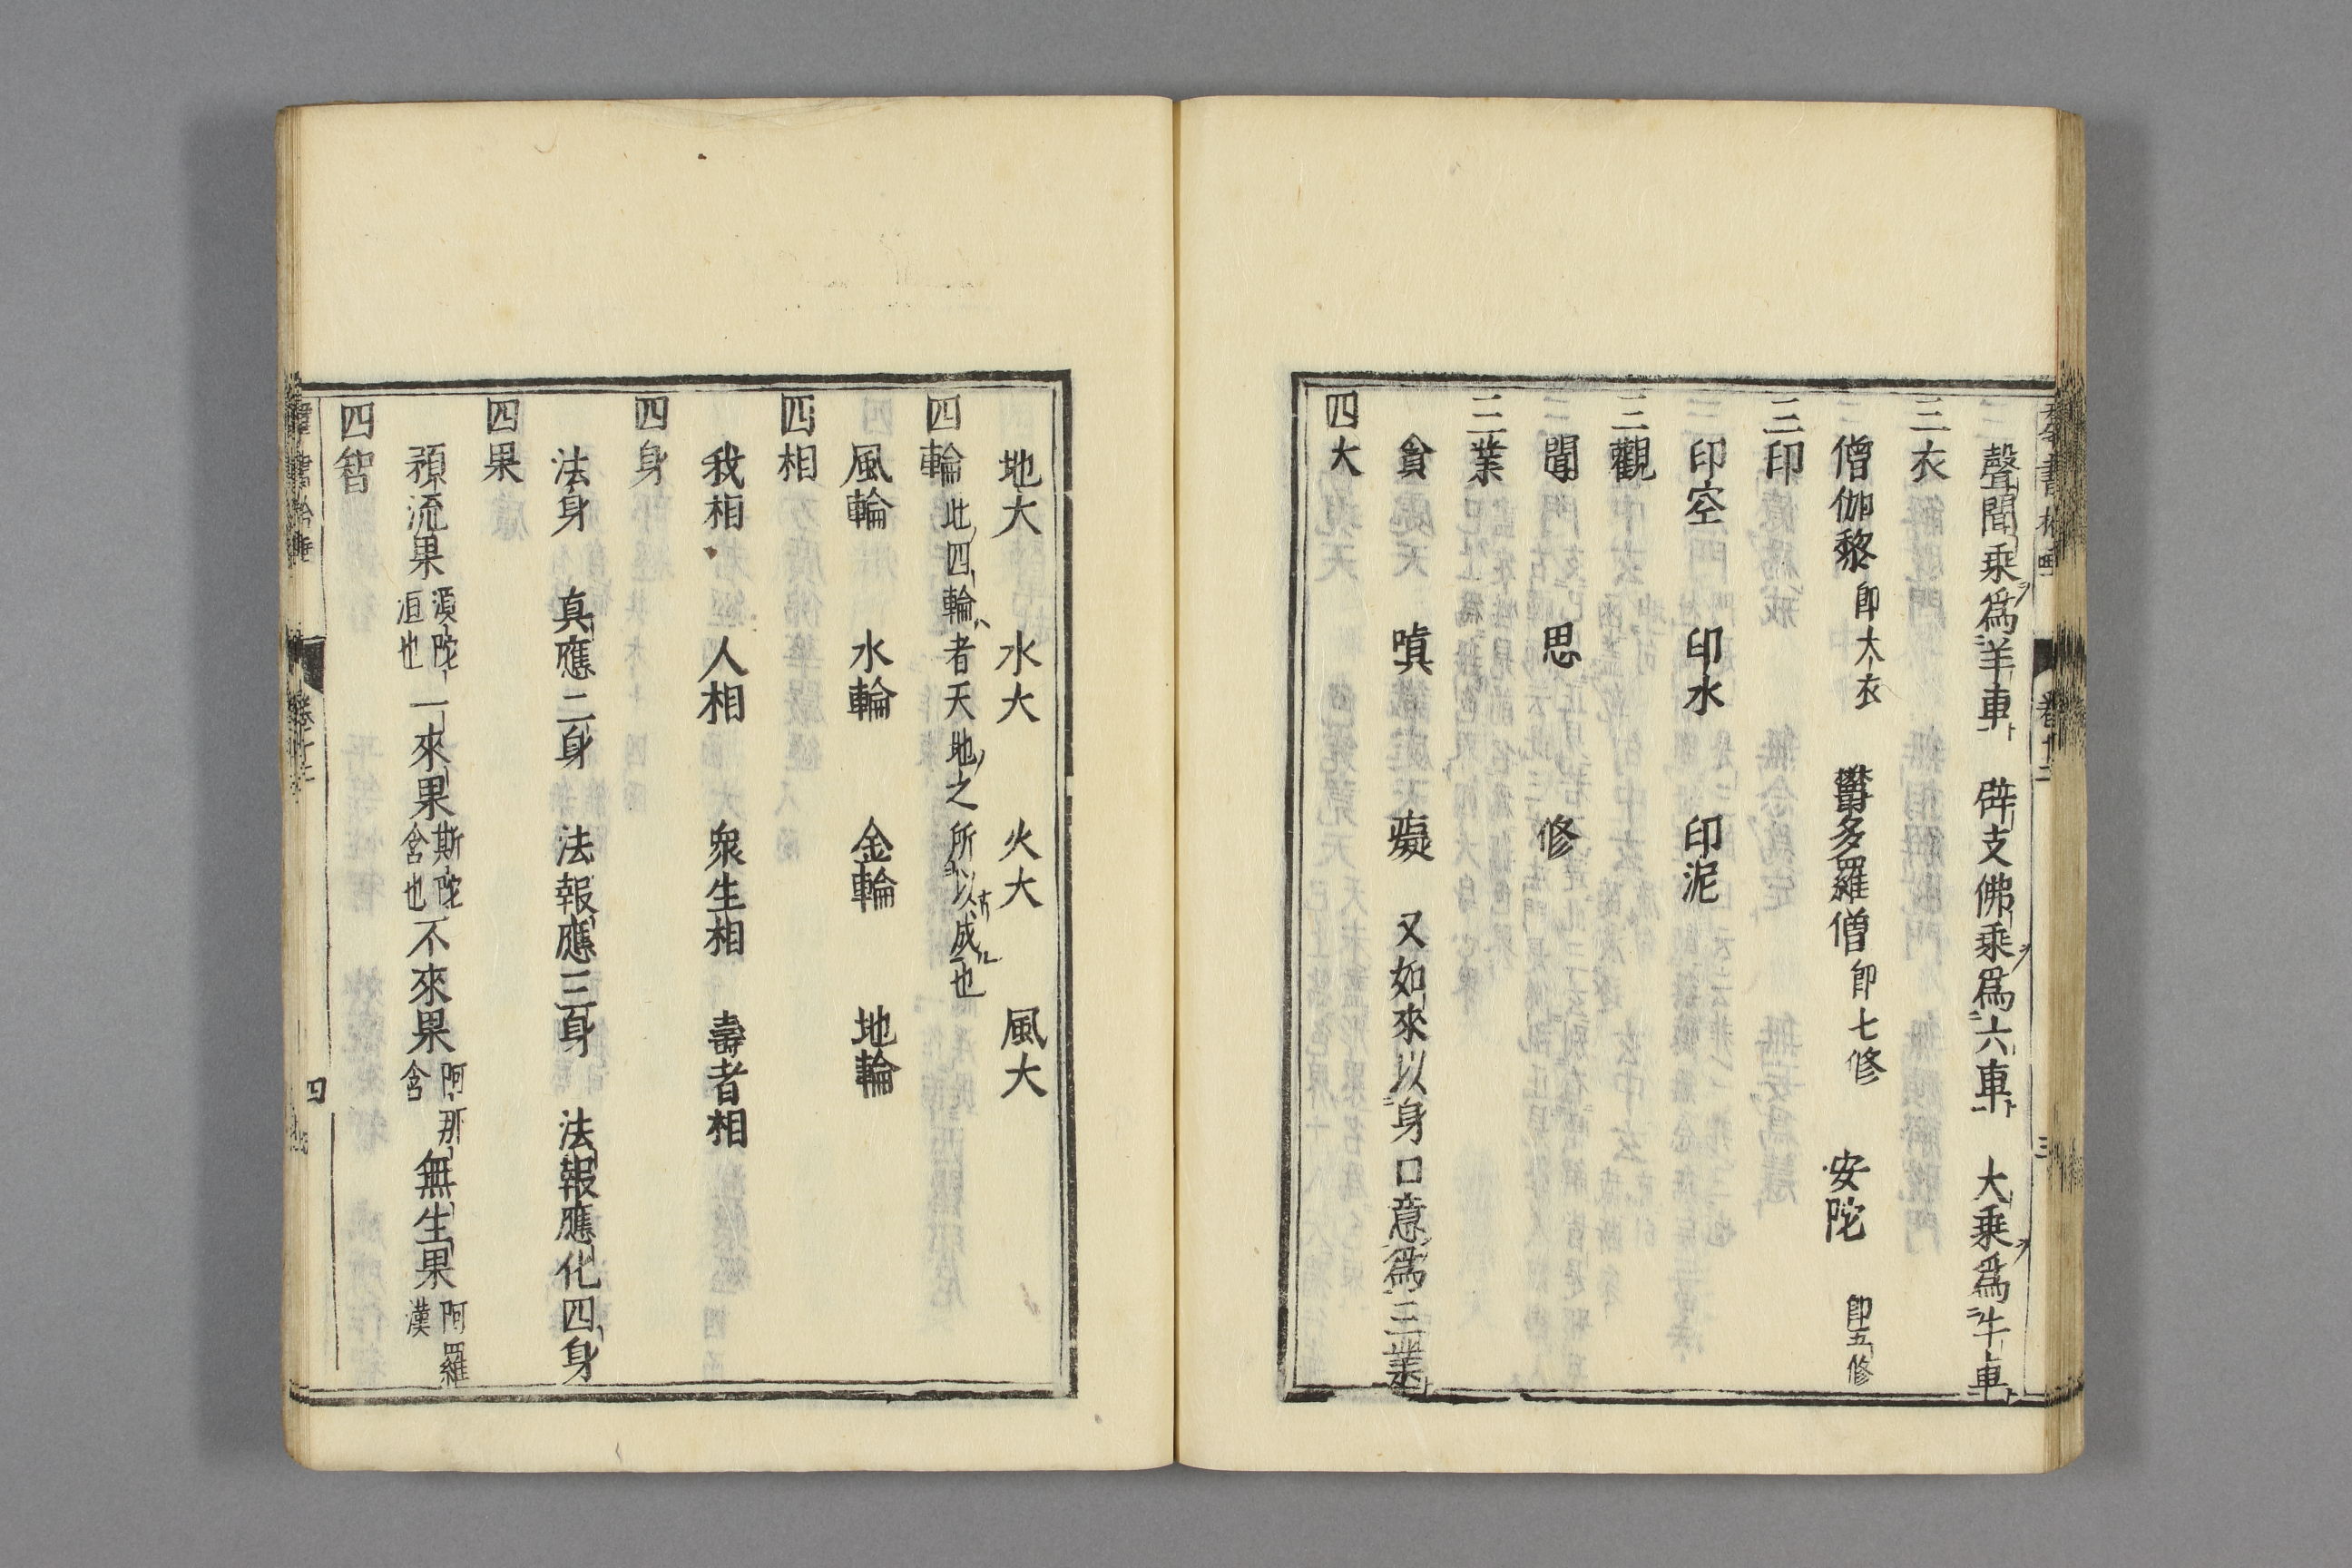 聲聞乘爲羊車　辟支佛乘爲六車　大乘爲牛車
三衣
僧伽黎即大衣　鬱多羅僧即七修　安陀即五修
三印
印空　印水　印泥
三觀
聞　思　修
三業
貪　嗔　癡　又如來以身口意爲三業
四大
地大　水大　火大　風大
四輪此四輪者天地之所以成也
風輪　水輪　金輪　地輪
四相
我相　人相　衆生相　壽者相
四身
法身　真應二身　法報應三身　法報應化四身
四果
預流果須陀洹也一來果斯陀含也不來果阿那含無生果阿羅漢
四智
四